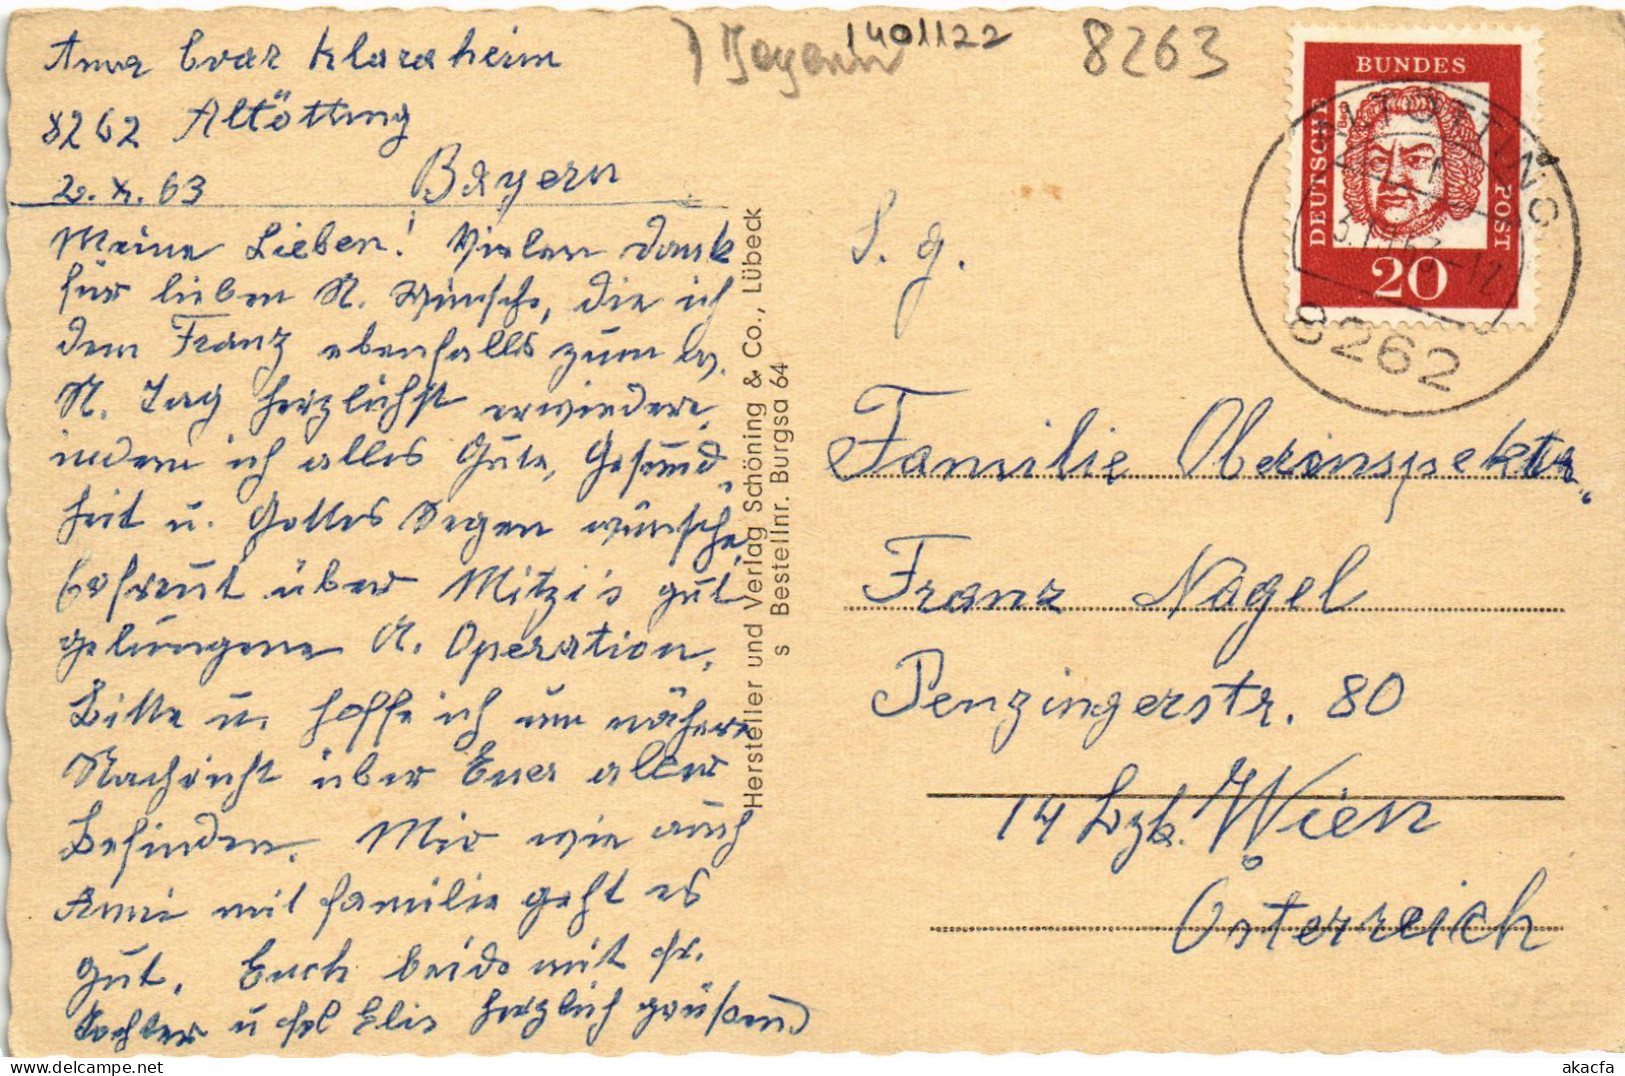 Anna Klaraheim
8262 Altötting
Bayern
2. X. 63
Meine Lieben! Vielen Dank
für lieben N. Wünsche, die ich
dem Franz ebenfalls zum
N. Tag herzlichst erwiedere,
indem ich alles Gute, Gesund-
heit u. Gottes Segen wünsche.
Erfreut über Mitzi's gut
gelungene A. Operation.
Bitte u. hoffe ich um nähere
Nachricht über Euer aller
Befinden. Mir wie auch
Anni mit Familie geht es
gut. Euch beide mit Fr.
Tochter u Frl Elis herzlich grüßend
Hersteller und Verlag Schöning & Co., Lübeck
s Bestellnr. Burgsa 64
1401122
8263
DEUTSCHE
BUNDES
POST
20
ALTÖTTING
8262
S. g.
Familie Oberinspektor
Franz Nagel
Penzingerstr. 80
14 Bzk. Wien
Österreich
akacfa